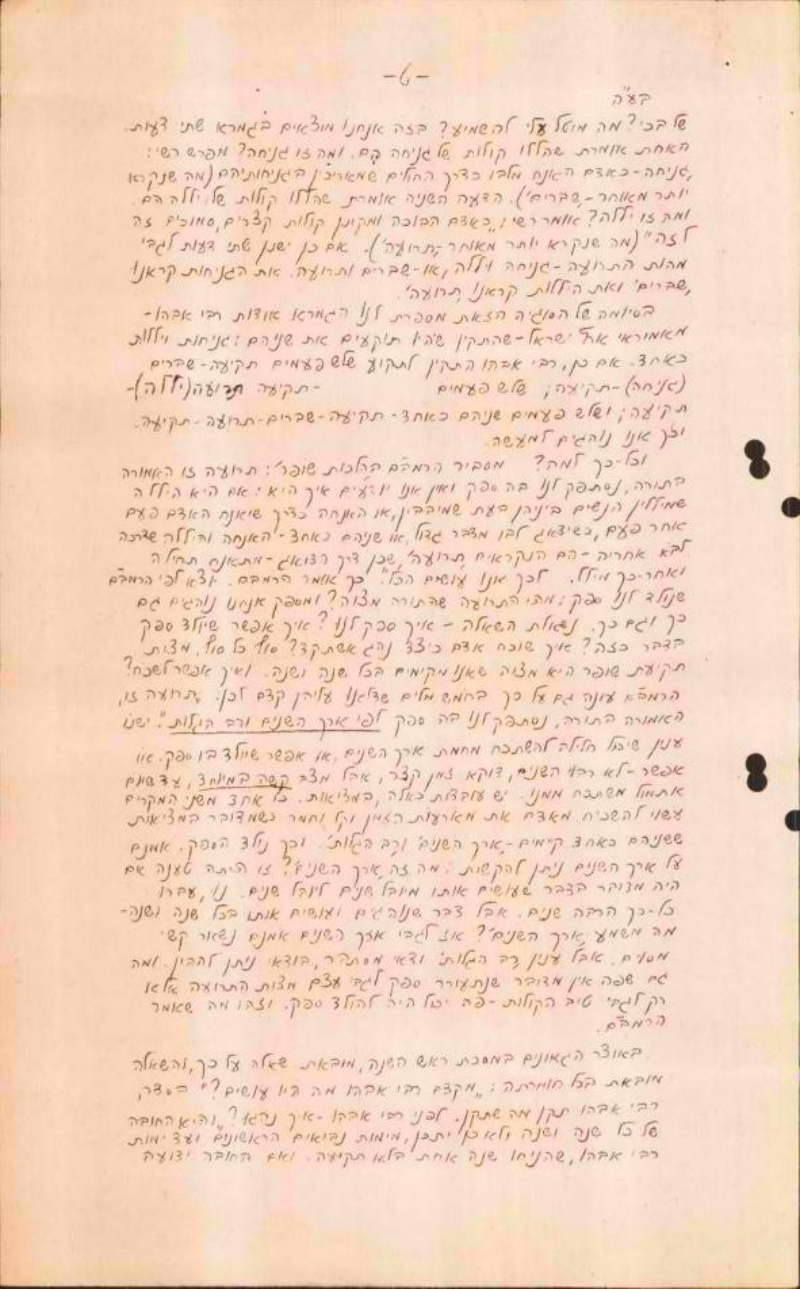 -6-
בע"ה
של בכי? מה מוטל עלי להשמיע? בזה אנחנו מוצאים בגמרא שתי דעות.
האחת אומרת שהללו קולות של גניחה הם. ומה זו גניחה? מפרש רשי:
"גניחה-כאדם האונח מלבו כדרך החולים שמאריכין בגניחותיהם (מה שנקרא
יותר מאוחר-"שברים"). הדעה השניה אומרת שהללו קולות של יללה הם.
ומה זו יללה? אומר רשי, "כאדם הבוכה ומקונן קולות קצרים, סמוכים זה
לזה" (מה שנקרא יותר מאוחר-"תרועה"). אם כן ישנן שתי דעות לגבי
מהות התרועה-גניחה ויללה, או-שברים ותרועה. את הגניחות קראנו
"שברים" ואת היללות קראנו "תרועה".
בסיומה של הסוגיה הזאת מספרת לנו הגמרא אודות רבי אבהו-
מאמוראי ארץ ישראל-שהתקין שיהיו תוקעים את שניהם: גניחות ויללות
כאחד. אם כן, רבי אבהו התקין לתקוע שלש פעמים תקיעה-שברים
(גניחה)-תקיעה; שלש פעמים -תקיעה תרועה (יללה)-
תקיעה; ושלש פעמים שניהם כאחד-תקיעה-שברים-תרועה-תקיעה.
וכך אנו נוהגים למעשה.
וכל-כך למה? מסביר הרמב"ם בהלכות שופר: "תרועה זו האמורה
בתורה, נסתפק לנו בה ספק ואין אנו יודעים איך היא: אם היא היללה
שמיללין הנשים ביניהן בעת שמיבבין, או האנחה כדרך שיאנח האדם פעם
אחר פעם, כשידאג לבו מדבר גדול, או שניהם כאחד-האנחה והיללה שדרכה
לבא אחריה-הם הנקראים "תרועה", שכן דרך הדואג-מתאנח תחילה
ואחר-כך מילל. לכך אנו עושים הכל." כך אומר הרמבם. יוצא לפי הרמב"ם
שנולד לנו ספק: מהי התרועה שהתורה מצוה? ומספק אנחנו נוהגים גם
כך וגם כך. נשאלת השאלה-איך ספק לנו? איך אפשר שיולד ספק
בדבר כזה? איך שוכח אדם כיצד נהג אשתקד? סוף כל סוף, מצות
תקיעת שופר היא מצוה שאנו מקימים בכל שנה ושנה. ואיך אפשר לשכח?
הרמב"ם עונה גם על כך בחמש מלים שדלגנו עליהן קדם לכן. "תרועה זו,
האמורה בתורה, נסתפק לנו בה ספק לפי ארך השנים ורב הגלות". ישנו
ענין שיכול חלילה להשתכח מחמת ארך השנים, או אפשר שיולד בו ספק. או
אפשר-לא רבוי השנים, דוקא זמן קצר, אבל מצב קשה במיוחד, עד שאדם
אתמול משתכח ממנו. יש עובדות כאלה, במציאות. כל אחד משני המקרים
עשוי להשכיח מאדם את מארעות הזמן וקל וחמר כשמדובר במציאות
ששניהם כאחד קיימים-"ארך השנים" ורב הגלות". וכך נולד הספק. אמנם
על ארך השנים ניתן להקשות: מה זה "ארך השנים"? זו היתה טענה אם
היה מדובר בדבר שעושים אותו מיובל שנים ליובל שנים. נו, עברו
כל-כך הרבה שנים. אבל דבר שנוהגים ועושים אותו בכל שנה ושנה-
מה משמע "ארך השנים"? אז לגבי ארך השנים אמנם נשאר קשי
מסוים. אבל ענין "רב הגלות" ודאי מסתבר, בודאי ניתן להבין. ומה
גם שפה אין מדובר שנתעורר ספק לגבי עצם מצות התרועה אלא
רק לגבי טיב הקולות-פה יכול היה להולד ספק. וזהו מה שאמר
הרמב"ם.
באוצר הגאונים במסכת ראש השנה, מובאת שאלה על כך, והשאלה
מובאת בכל חומרתה: "מקדם רבי אבהו מה היו עושים?" בסדר,
רבי אבהו תקן מה שתקן. לפני רבי אבהו-איך נהגו? "והיא החובה
של כל שנה ושנה ולא כן יתכן, מימות נביאים הראשונים ועד ימות
רבי אבהו, שהניחו שנה אחת בלא תקיעה. ואם החובה ידועה